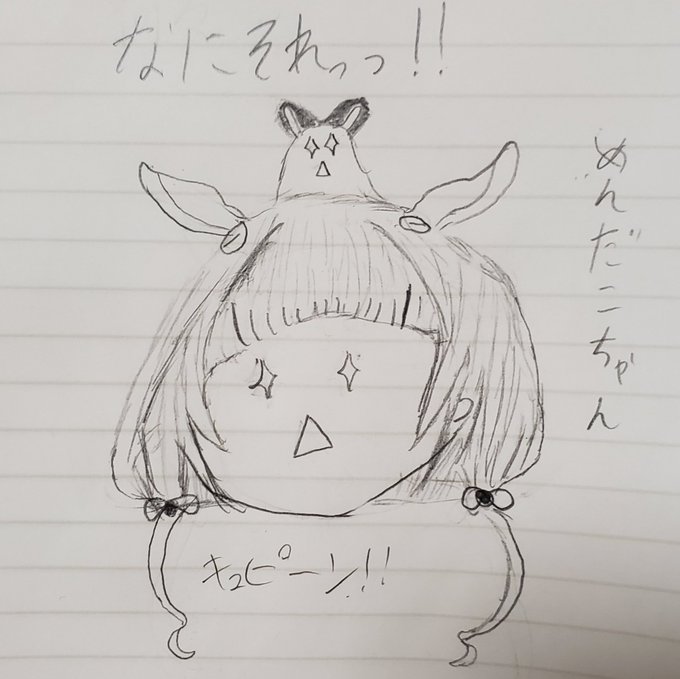 なにそれっっ!!
めんだこちゃん
キュピーン!!